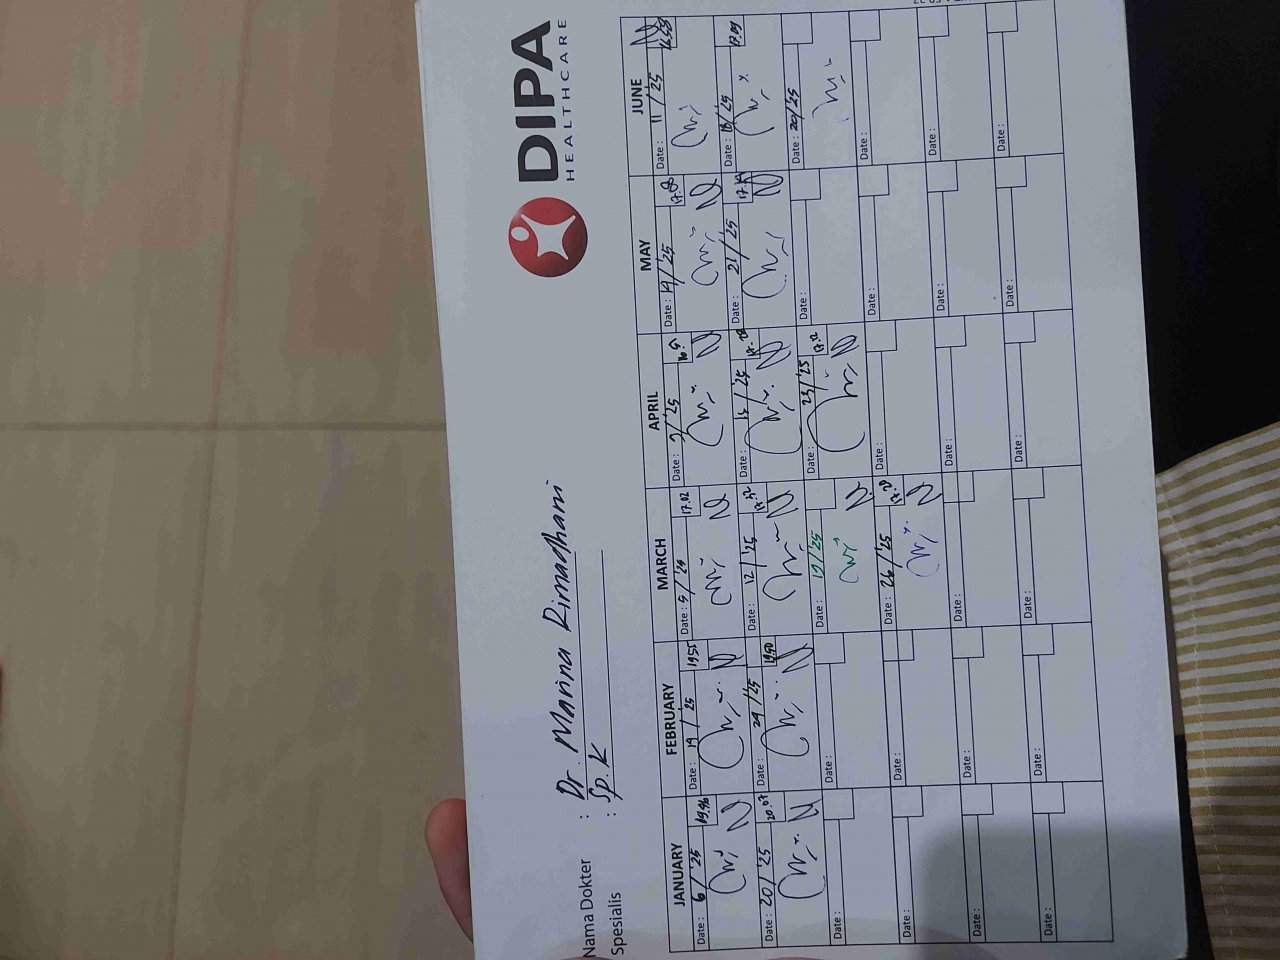 DIPA
HEALTHCARE
Nama Dokter : Dr. Marina Rimadhani
Spesialis : Sp. K
JANUARY FEBRUARY MARCH APRIL MAY JUNE
Date : 6 / '25 19.46 Date : 19 / '25 19.55 Date : 5 / '25 17.02 Date : 2/ '25 Date : 19/ '25 Date : 11 / '25
Date : 20/ '25 20.07 Date : 24 / '25 19.50 Date : 12 / '25 Date : / '25 Date : 21 / '25 Date : 18/ '25 17.09
Date : Date : Date : 19/ '25 Date : 23/ '25 17.12 Date : Date : 20/ '25
Date : Date : Date : 26/ '25 Date : Date : Date :
Date : Date : Date : Date : Date : Date :
Date : Date : Date : Date : Date : Date :